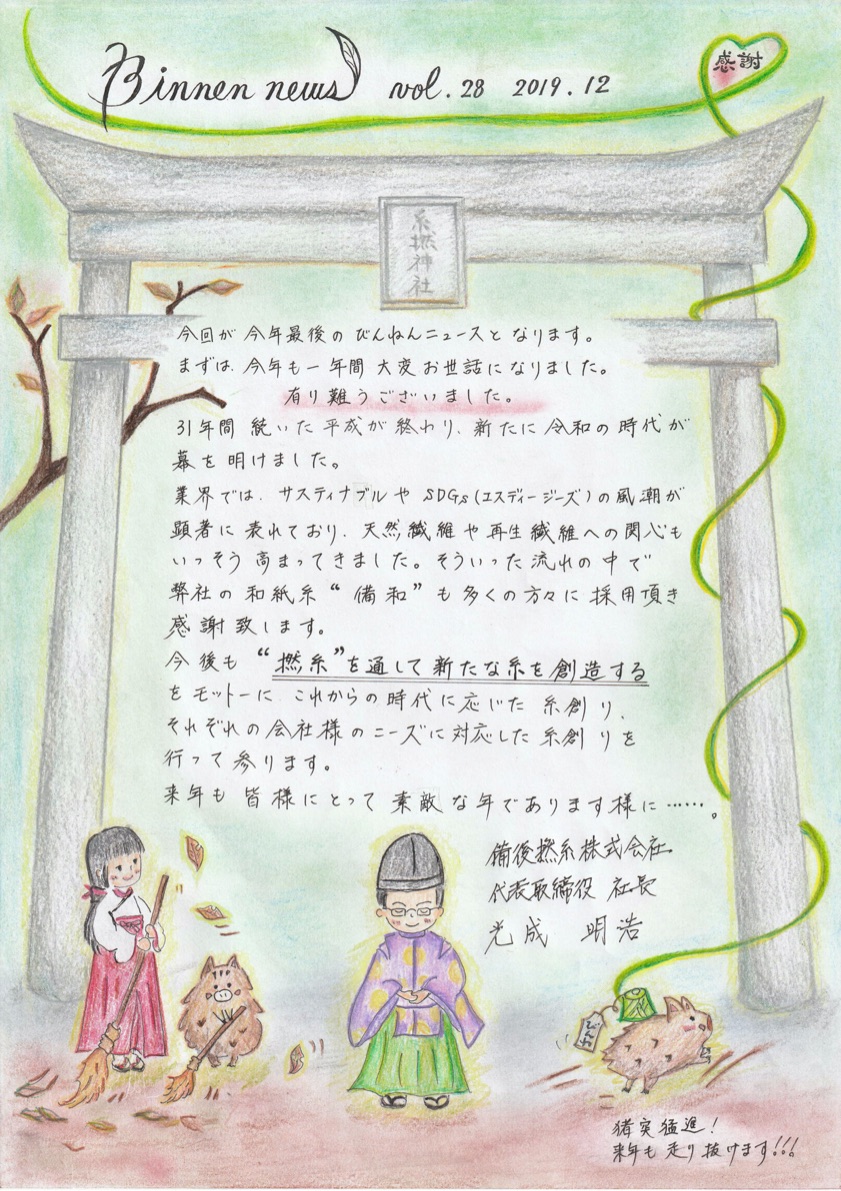 Binnen news vol.28 2019.12
感謝
糸撚神社
今回が今年最後のびんねんニュースとなります。
まずは、今年も一年間大変お世話になりました。
有り難うございました。
31年間続いた平成が終わり、新たに令和の時代が
幕を明けました。
業界では、サスティナブルやSDGs(エスディージーズ)の風潮が
顕著に表れており、天然繊維や再生繊維への関心も
いっそう高まってきました。そういった流れの中で
弊社の和紙糸“備和”も多くの方々に採用頂き
感謝致します。
今後も“撚糸”を通して新たな糸を創造する
をモットーに、これからの時代に応じた糸創り、
それぞれの会社様のニーズに対応した糸創りを
行って参ります。
来年も皆様にとって素敵な年であります様に……。
備後撚糸株式会社
代表取締役 社長
光成 明浩
びんねん
猪突猛進!
来年も走り抜けます!!!